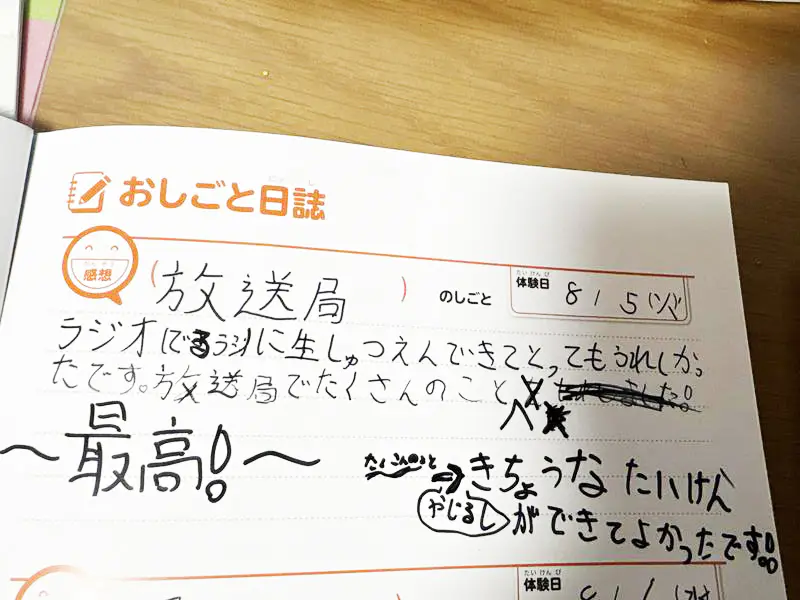 おしごと日誌
感想
(放送局)のしごと
たいけんび
体験日 8/5(ソバ)
ラジオに生しゅつえんできてとってもうれしかっ
たです。放送局でたくさんのこと
〜最高!〜
たくさんのこと
⇒きちょうなたいけん
やじるし
ができてよかったです!!
たいけんび
体験日